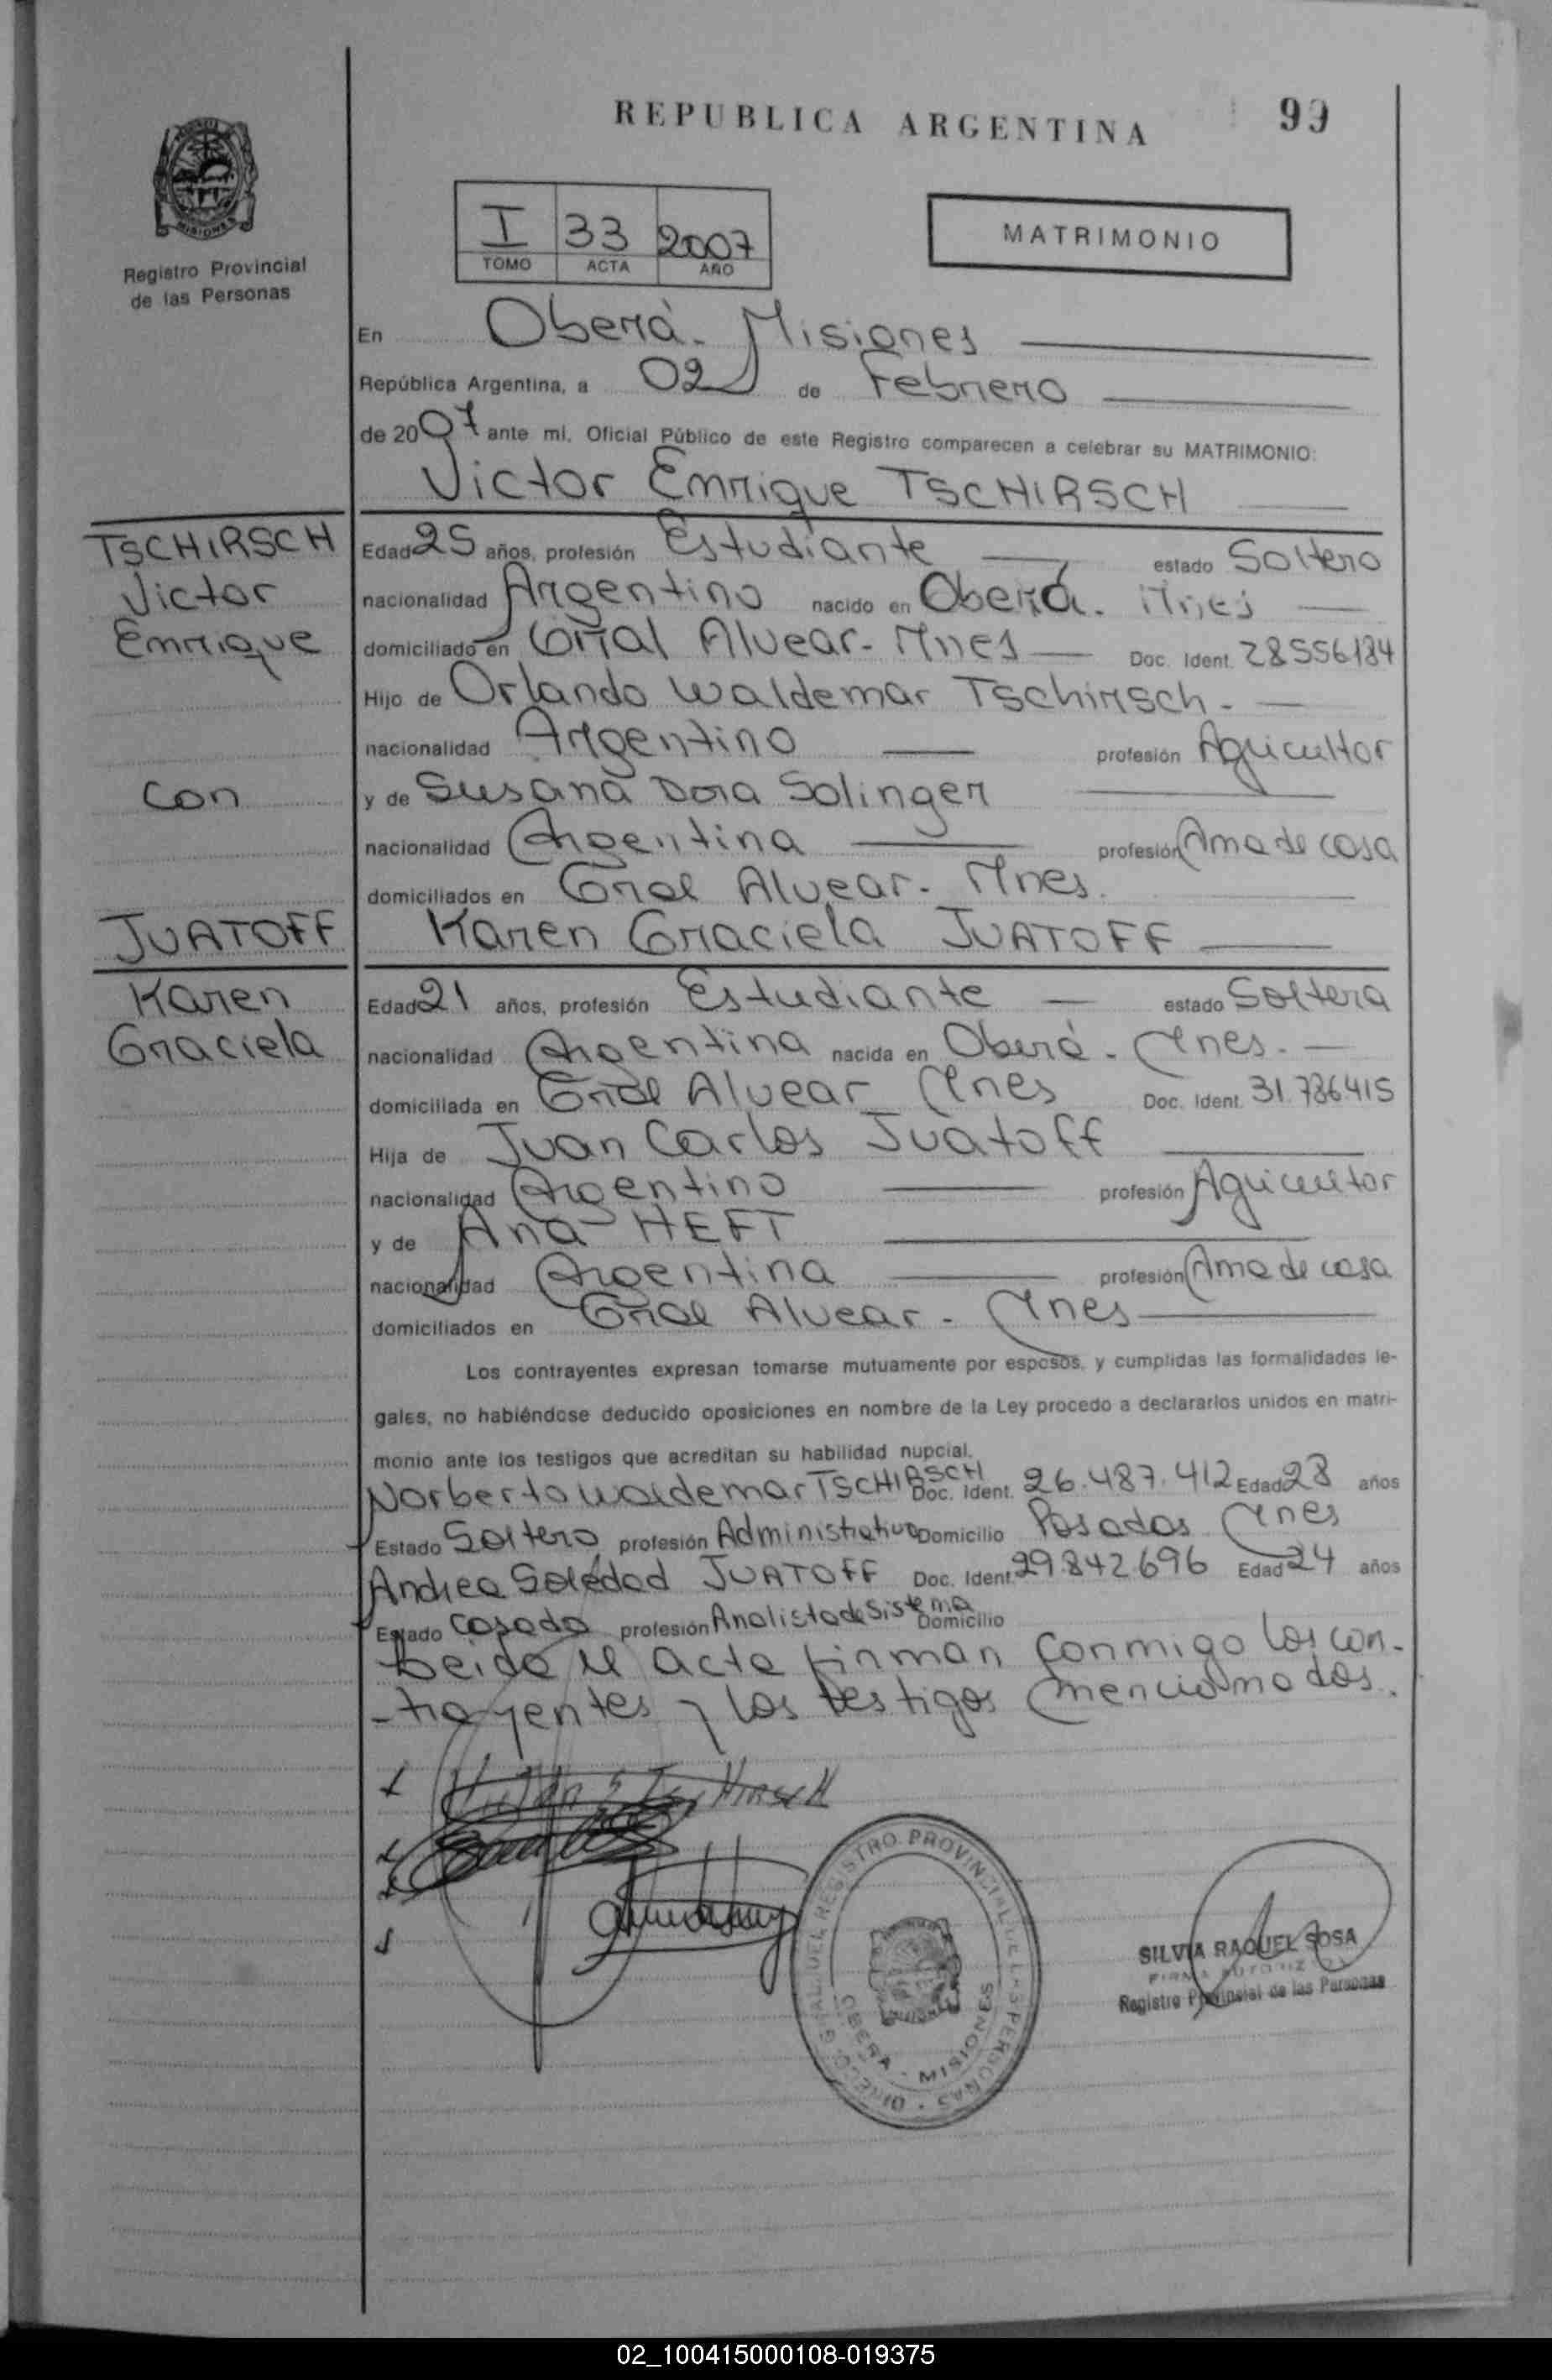 REPUBLICA ARGENTINA 99
MISIONES
Registro Provincial
de las Personas
I 33 2007
TOMO ACTA AÑO
MATRIMONIO
En Oberá. Misiones
República Argentina, a 02 de Febrero
de 2007 ante mi, Oficial Público de este Registro comparecen a celebrar su MATRIMONIO:
Victor Enrique TSCHIRSCH
TSCHIRSCH
Victor
Enrique
Edad 25 años, profesión Estudiante estado Soltero
nacionalidad Argentino nacido en Oberá. Mnes
domiciliado en Gral Alvear - Mnes Doc. Ident. 28556184
Hijo de Orlando Waldemar Tschirsch.
nacionalidad Argentino profesión Agricultor
con
y de Susana Dora Solinger
nacionalidad Argentina profesión Ama de casa
domiciliados en Gral Alvear. Mnes.
JUATOFF
Karen Graciela JUATOFF
Karen
Graciela
Edad 21 años, profesión Estudiante estado Soltera
nacionalidad Argentina nacida en Oberá. Mnes.
domiciliada en Gral Alvear Mnes Doc. Ident. 31.786.415
Hija de Juan Carlos Juatoff
nacionalidad Argentino profesión Agricultor
y de Ana HEFT
nacionalidad Argentina profesión Ama de casa
domiciliados en Gral Alvear - Mnes
Los contrayentes expresan tomarse mutuamente por esposos, y cumplidas las formalidades le-
gales, no habiéndose deducido oposiciones en nombre de la Ley procedo a declararlos unidos en matri-
monio ante los testigos que acreditan su habilidad nupcial.
Norberto Waldemar TSCHIRSCH Doc. Ident. 26.487.412 Edad 28 años
Estado Soltero profesión Administrativo Domicilio Posadas Mnes
Andrea Soledad JUATOFF Doc. Ident. 29.842.696 Edad 24 años
Estado Casada profesión Analista de Sistema Domicilio
Leida el acta firman conmigo los con-
-trayentes y los testigos mencionados.
DIRECC. GRAL. DEL REGISTRO PROVINCIAL DE LAS PERSONAS
OBERA - MISIONES
SILVIA RAQUEL SOSA
FIRMA AUTORIZADA
Registro Provincial de las Personas
02_100415000108-019375